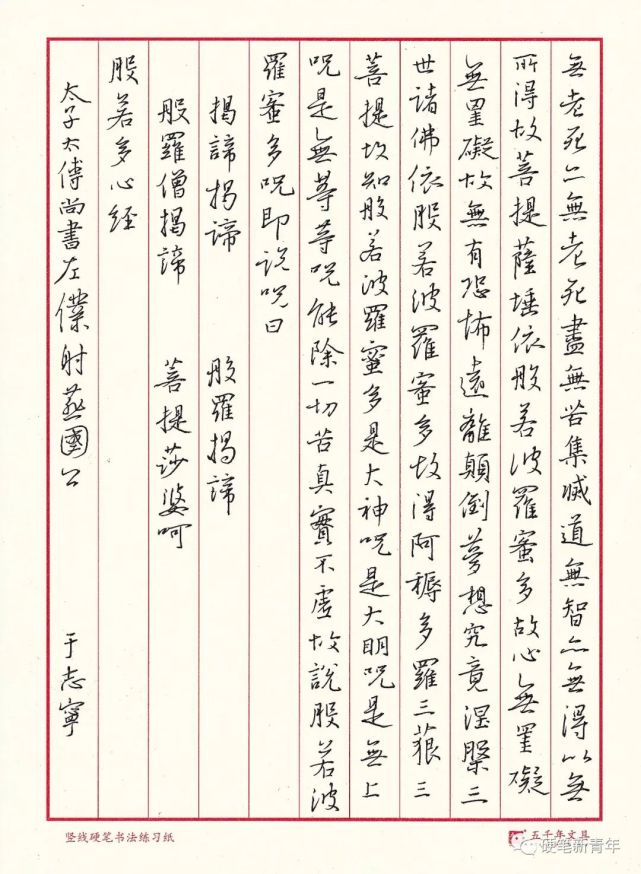 無老死亦無老死盡無苦集滅道無智亦無得以無
所得故菩提薩埵依般若波羅蜜多故心無罣礙
無罣礙故無有恐怖遠離顛倒夢想究竟涅槃三
世諸佛依般若波羅蜜多故得阿耨多羅三藐三
菩提故知般若波羅蜜多是大神咒是大明咒是無上
咒是無等等咒能除一切苦真實不虛故說般若波
羅蜜多咒即說咒曰
揭諦揭諦 般羅揭諦
般羅僧揭諦 菩提莎婆呵
般若多心經
太子太傅尚書左僕射燕國公 于志寧
竖线硬笔书法练习纸
五千年文具
硬笔新青年